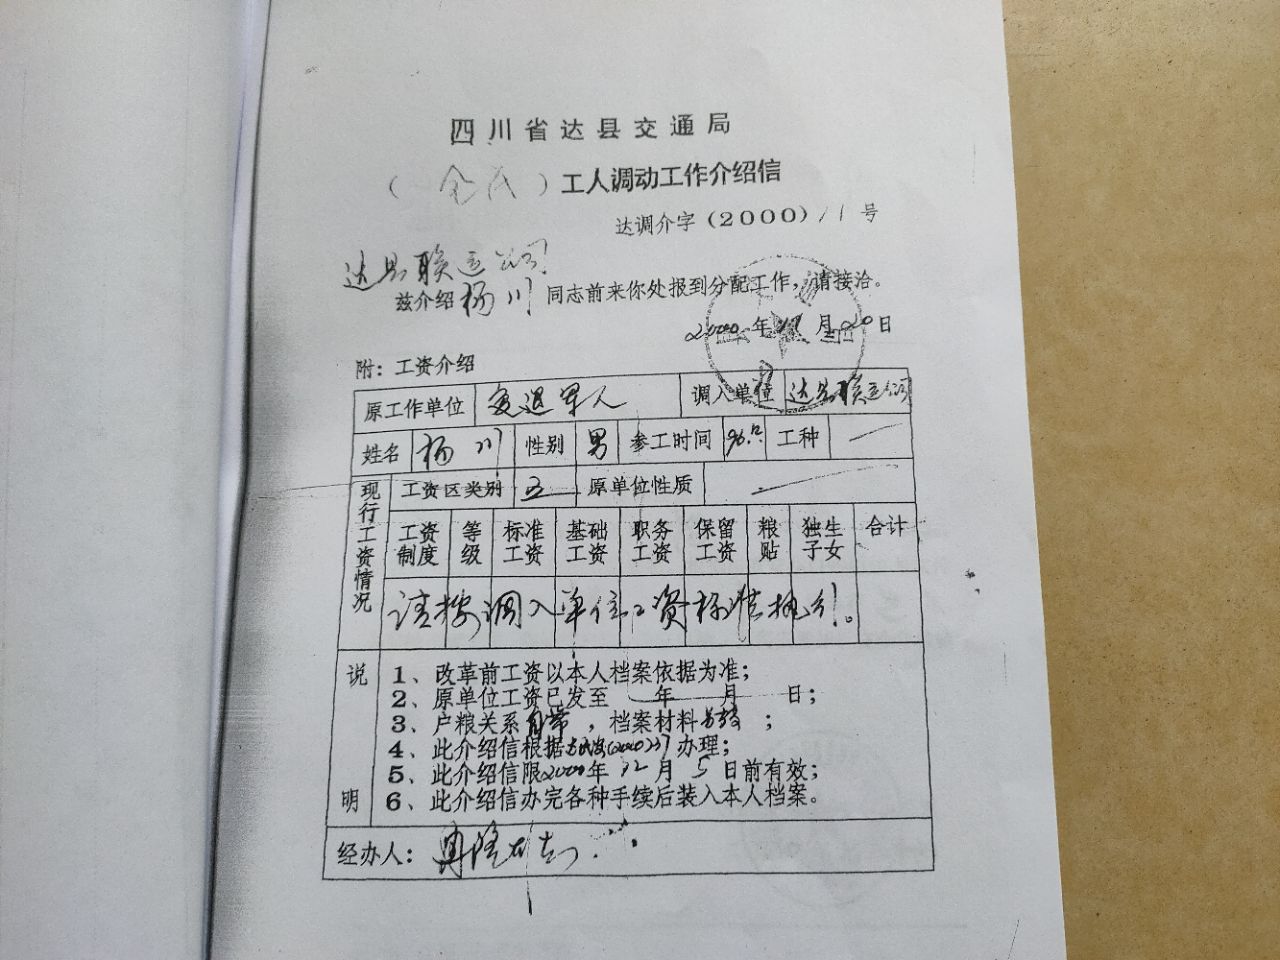 四川省达县交通局
（全民）工人调动工作介绍信
达调介字（2000）11号
达县联运公司：
兹介绍杨川同志前来你处报到分配工作，请接洽。
2000年11月20日
附：工资介绍
原工作单位 复退军人 调入单位 达县联运公司
姓名 杨川 性别 男 参工时间 96.12 工种
现行工资情况 工资区类别 五 原单位性质
工资制度 等级 标准工资 基础工资 职务工资 保留工资 粮贴 独生子女 合计
请按调入单位工资标准执行。
说明
1、改革前工资以本人档案依据为准；
2、原单位工资已发至 年 月 日；
3、户粮关系自带，档案材料 ；
4、此介绍信根据 办理；
5、此介绍信限2000年12月5日前有效；
6、此介绍信办完各种手续后装入本人档案。
经办人：